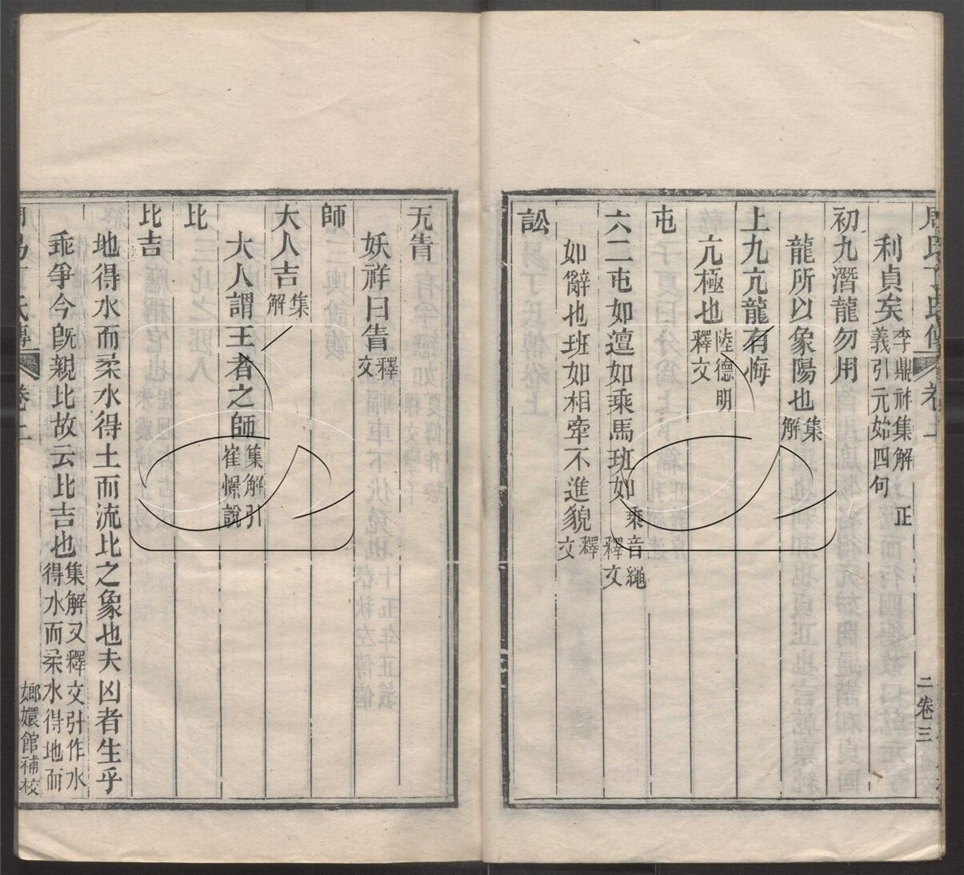 利貞矣李鼎祚集解 正義引元始四句
初九潛龍勿用
龍所以象陽也集解
上九亢龍有悔
亢極也陸德明釋文
屯
六二屯如邅如乘馬班如乘音繩釋文
如辭也班如相牽不進貌釋文
訟
无眚
妖祥曰眚釋文
師
大人吉集解
大人謂王者之師集解引崔憬說
比
比吉
地得水而柔水得土而流比之象也夫凶者生乎
乖爭今旣親比故云比吉也集解又釋文引作水得水而柔水得地而
卷三
二
嫏嬛館補校